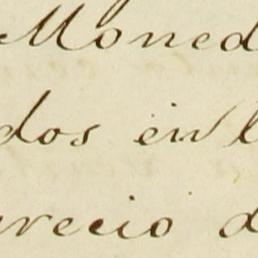 Moned
dos en l
precio d